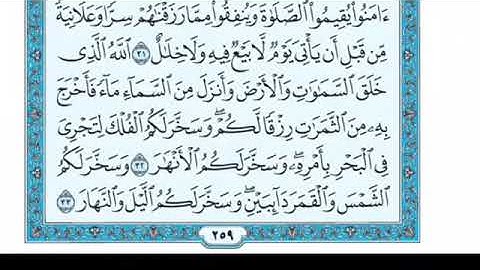 ءَامَنُوا۟ يُقِيمُوا۟ ٱلصَّلَوٰةَ وَيُنفِقُوا۟ مِمَّا رَزَقْنَٰهُمْ سِرًّا وَعَلَانِيَةً
مِّن قَبْلِ أَن يَأْتِىَ يَوْمٌ لَّا بَيْعٌ فِيهِ وَلَا خِلَٰلٌ ٣١ ٱللَّهُ ٱلَّذِى
خَلَقَ ٱلسَّمَٰوَٰتِ وَٱلْأَرْضَ وَأَنزَلَ مِنَ ٱلسَّمَآءِ مَآءً فَأَخْرَجَ
بِهِۦ مِنَ ٱلثَّمَرَٰتِ رِزْقًا لَّكُمْ ۖ وَسَخَّرَ لَكُمُ ٱلْفُلْكَ لِتَجْرِىَ
فِى ٱلْبَحْرِ بِأَمْرِهِۦ ۖ وَسَخَّرَ لَكُمُ ٱلْأَنْهَٰرَ ٣٢ وَسَخَّرَ لَكُمُ
ٱلشَّمْسَ وَٱلْقَمَرَ دَآئِبَيْنِ ۖ وَسَخَّرَ لَكُمُ ٱلَّيْلَ وَٱلنَّهَارَ ٣٣
٢٥٩